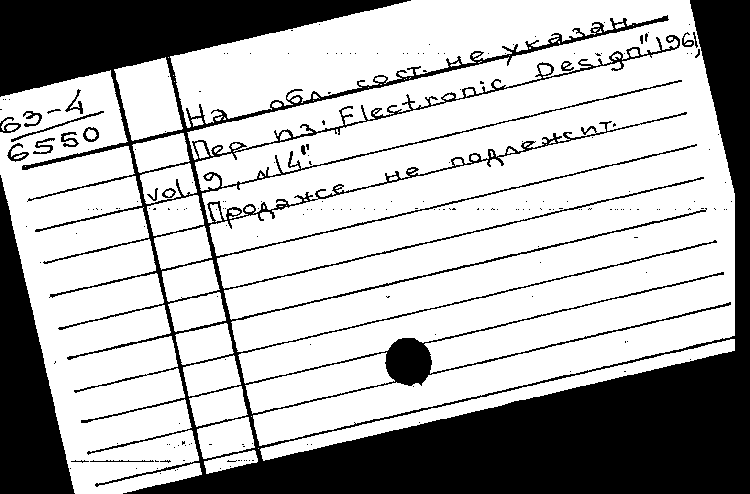 63-4
6550
На обл. сост. не указан.
Пер из: „Electronic Design", 196
vol. 9, №14".
Продаже не подлежит.